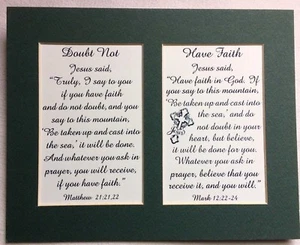 Doubt Not
Jesus said,
"Truly, I say to you
if you have faith
and do not doubt, and you
say to this mountain,
'Be taken up and cast into
the sea,' it will be done.
And whatever you ask in
prayer, you will receive,
if you have faith."
Matthew 21:21,22
Have Faith
Jesus said,
"Have faith in God. If you
say to this mountain,
'Be taken up and cast into
the sea,' and do
not doubt in your
heart, but believe,
it will be done for you.
Whatever you ask in
prayer, believe that you
receive it, and you will."
Mark 12:22-24